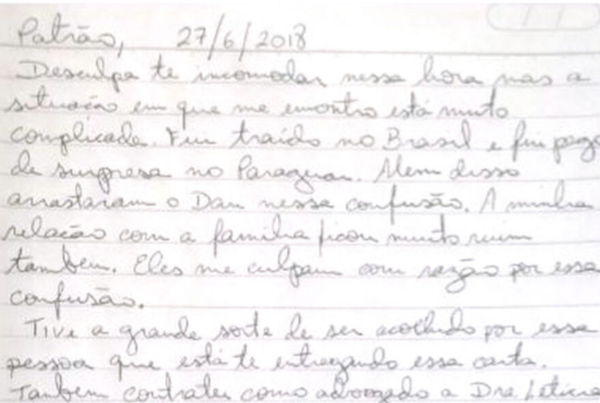 Patrão, 27/6/2018
Desculpa te incomodar nessa hora mas a
situação em que me encontro está muito
complicada. Fui traído no Brasil e fui pego
de surpresa no Paraguai. Alem disso
arrastaram o Dan nessa confusão. A minha
relação com a família ficou muito ruim
tambem. Eles me culpam com razão por essa
confusão.
Tive a grande sorte de ser acolhido por essa
pessoa que está te entregando essa carta.
Tambem contratei como advogado a Dra Leticia